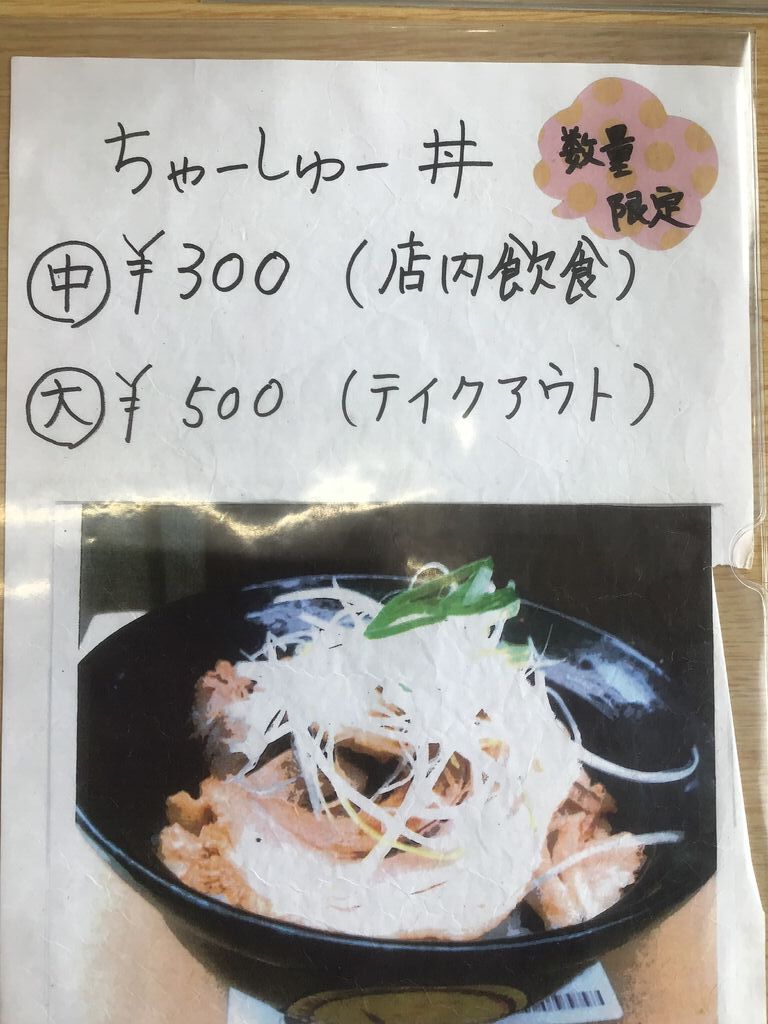 ちゃーしゅー丼
数量
限定
㊥ ¥300 (店内飲食)
㊅ ¥500 (テイクアウト)